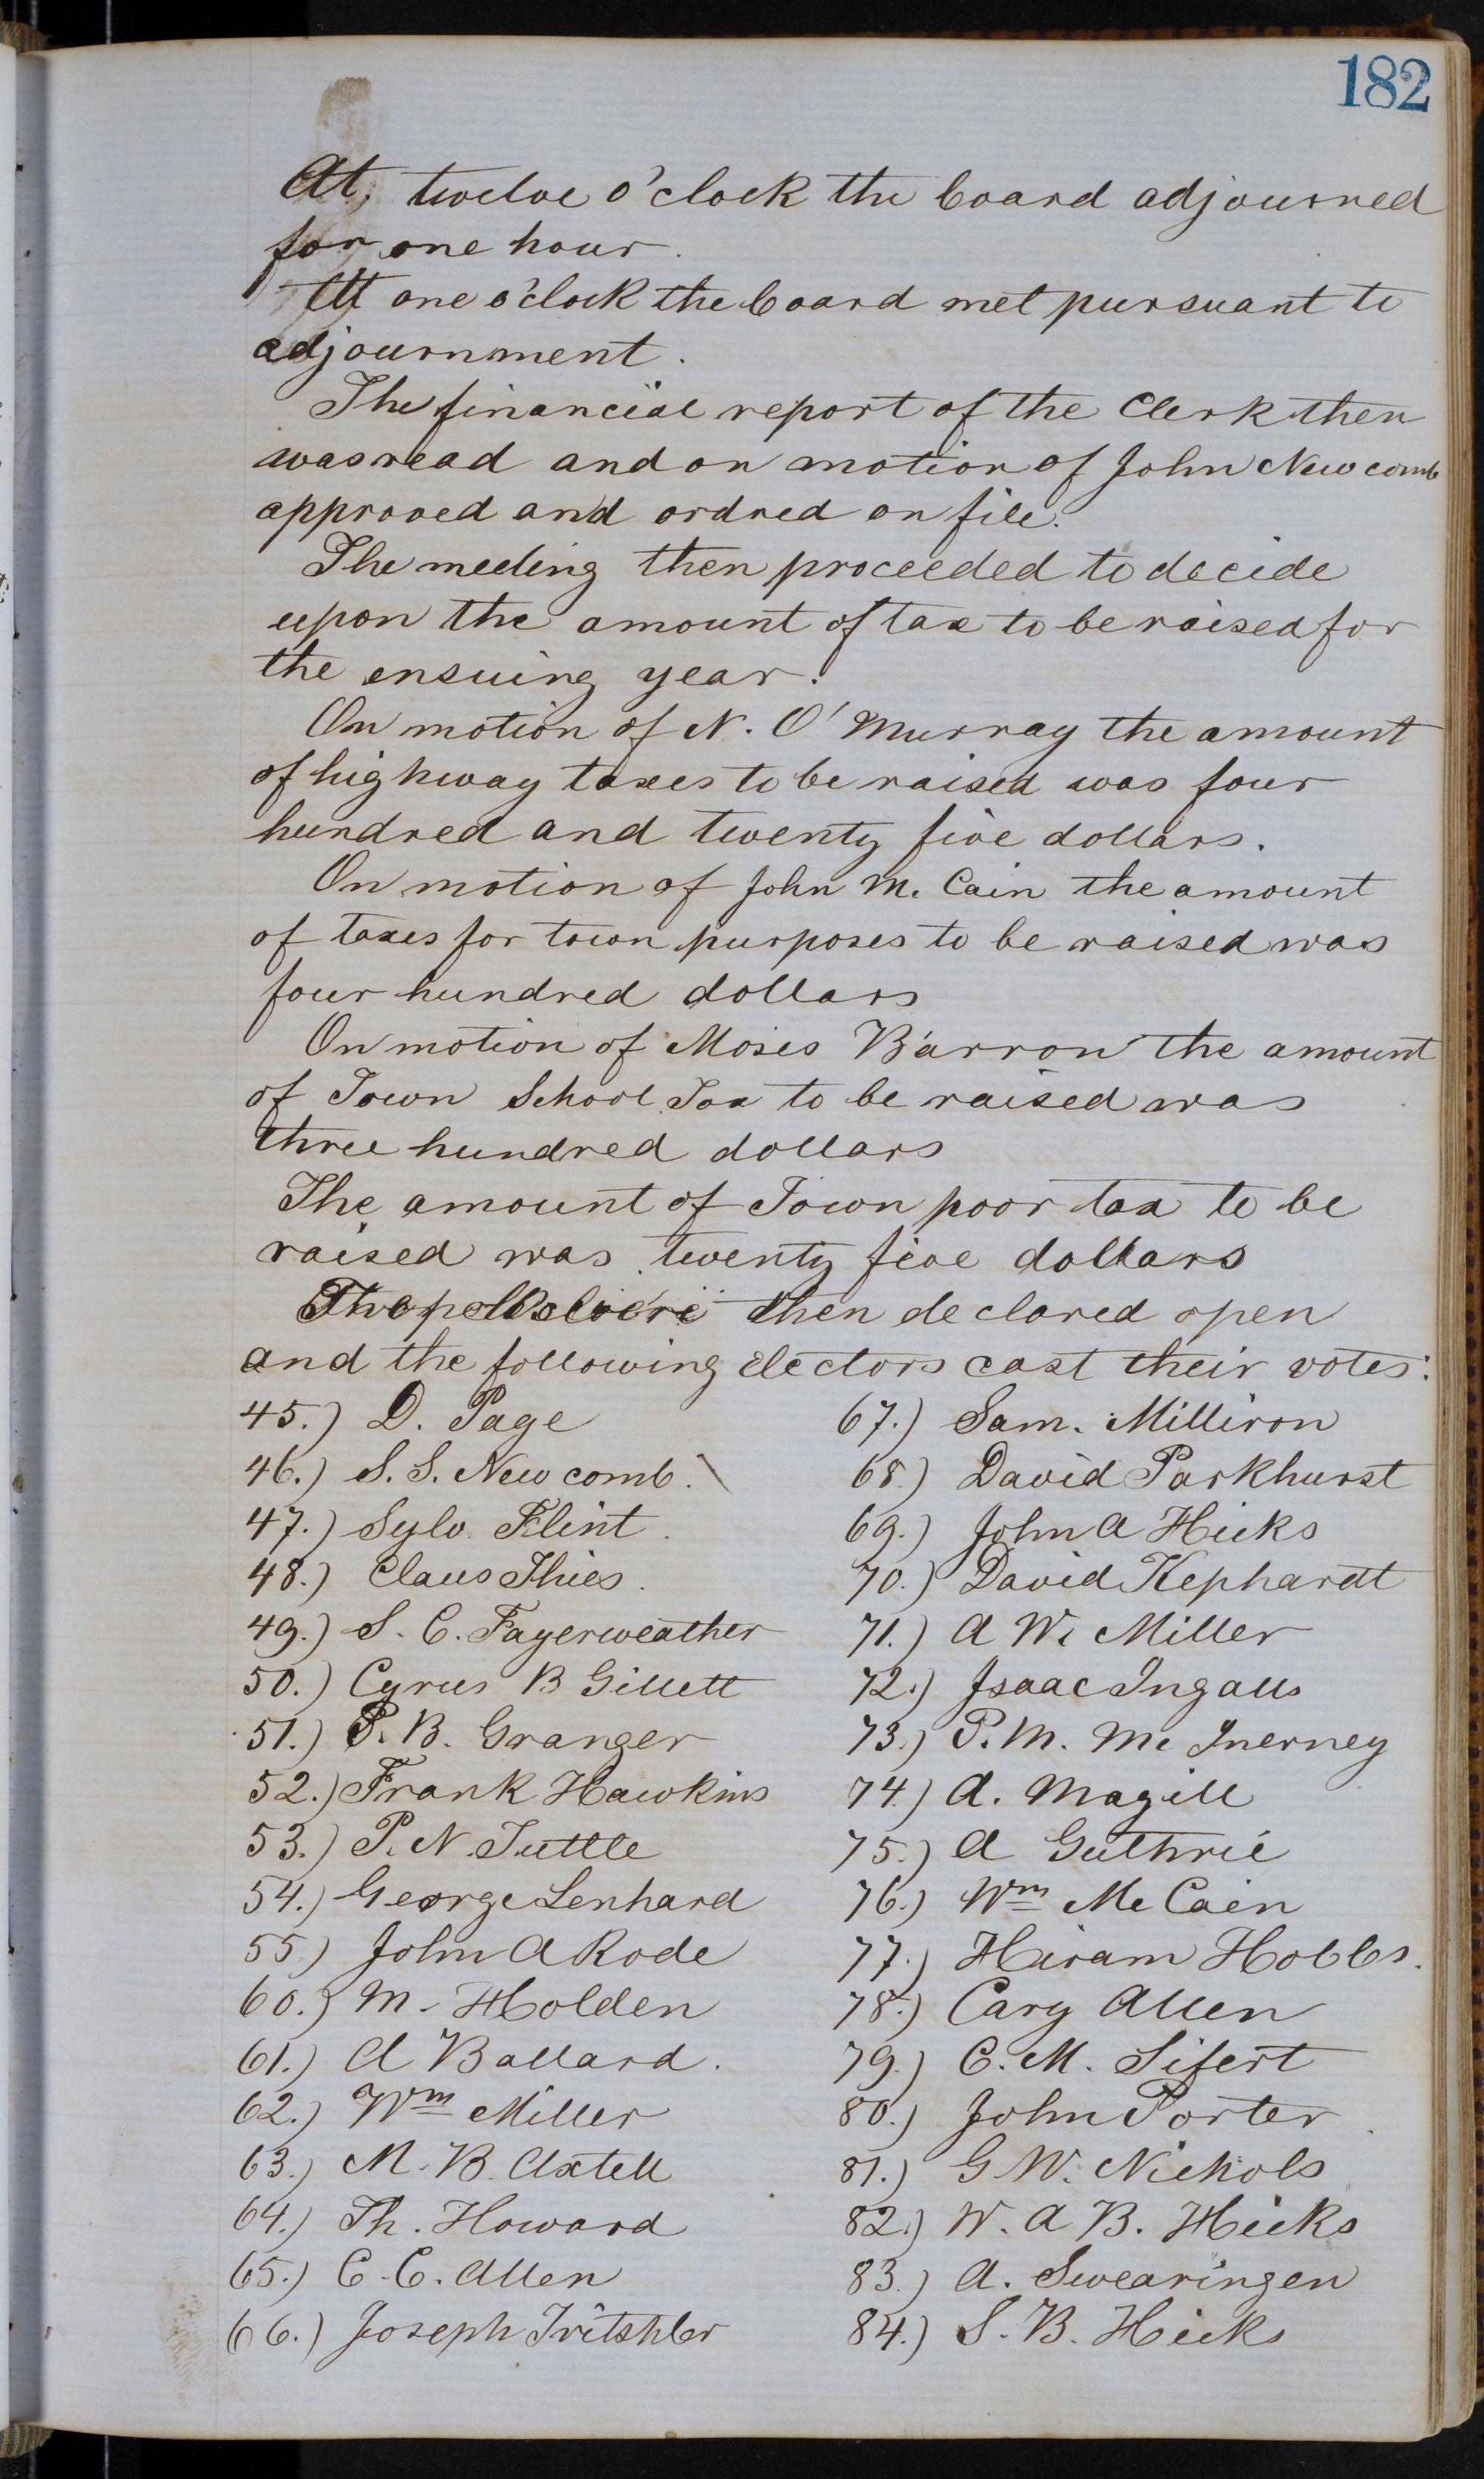 182
At, twelve o'clock the board adjourned
for one hour.
At one o'clock the board met pursuant to
adjournment.
The financial report of the Clerk then
was read and on motion of John Newcomb
approved and ordred on file.
The meeting then proceeded to decide
upon the amount of tax to be raised for
the ensuing year.
On motion of N. O'Murray the amount
of highway taxes to be raised was four
hundred and twenty five dollars.
On motion of John M. Cain the amount
of taxes for town purposes to be raised was
four hundred dollars
On motion of Moses Barron the amount
of Town School Tax to be raised was
three hundred dollars
The amount of Town poor tax to be
raised was twenty five dollars
The polls were then declared open
and the following electors cast their votes:
45.) D. Page
46.) S. S. Newcomb.
47.) Sylv. Flint.
48.) Claus Thies.
49.) S. C. Fayerweather
50.) Cyrus B Gillett
51.) P. B. Granger
52.) Frank Hawkins
53.) P. N. Tuttle
54.) George Lenhard
55.) John A Rode
60.) M. Holden
61.) A Ballard.
62.) Wm Miller
63.) M. B. Axtell
64.) Th. Howard
65.) C. C. Allen
66.) Joseph Tritshler
67.) Sam. Milliron
68.) David Parkhurst
69.) John A Hicks
70.) David Kephardt
71.) A W. Miller
72.) Isaac Ingalls
73.) P. M. Mc Inerney
74.) A. Magill
75.) A Guthrie
76.) Wm Mc Cain
77.) Hiram Hobbs.
78.) Cary Allen
79.) C. M. Sifert
80.) John Porter
81.) G W. Nichols
82.) W. A B. Hicks
83.) A. Swearingen
84.) S. B. Hicks